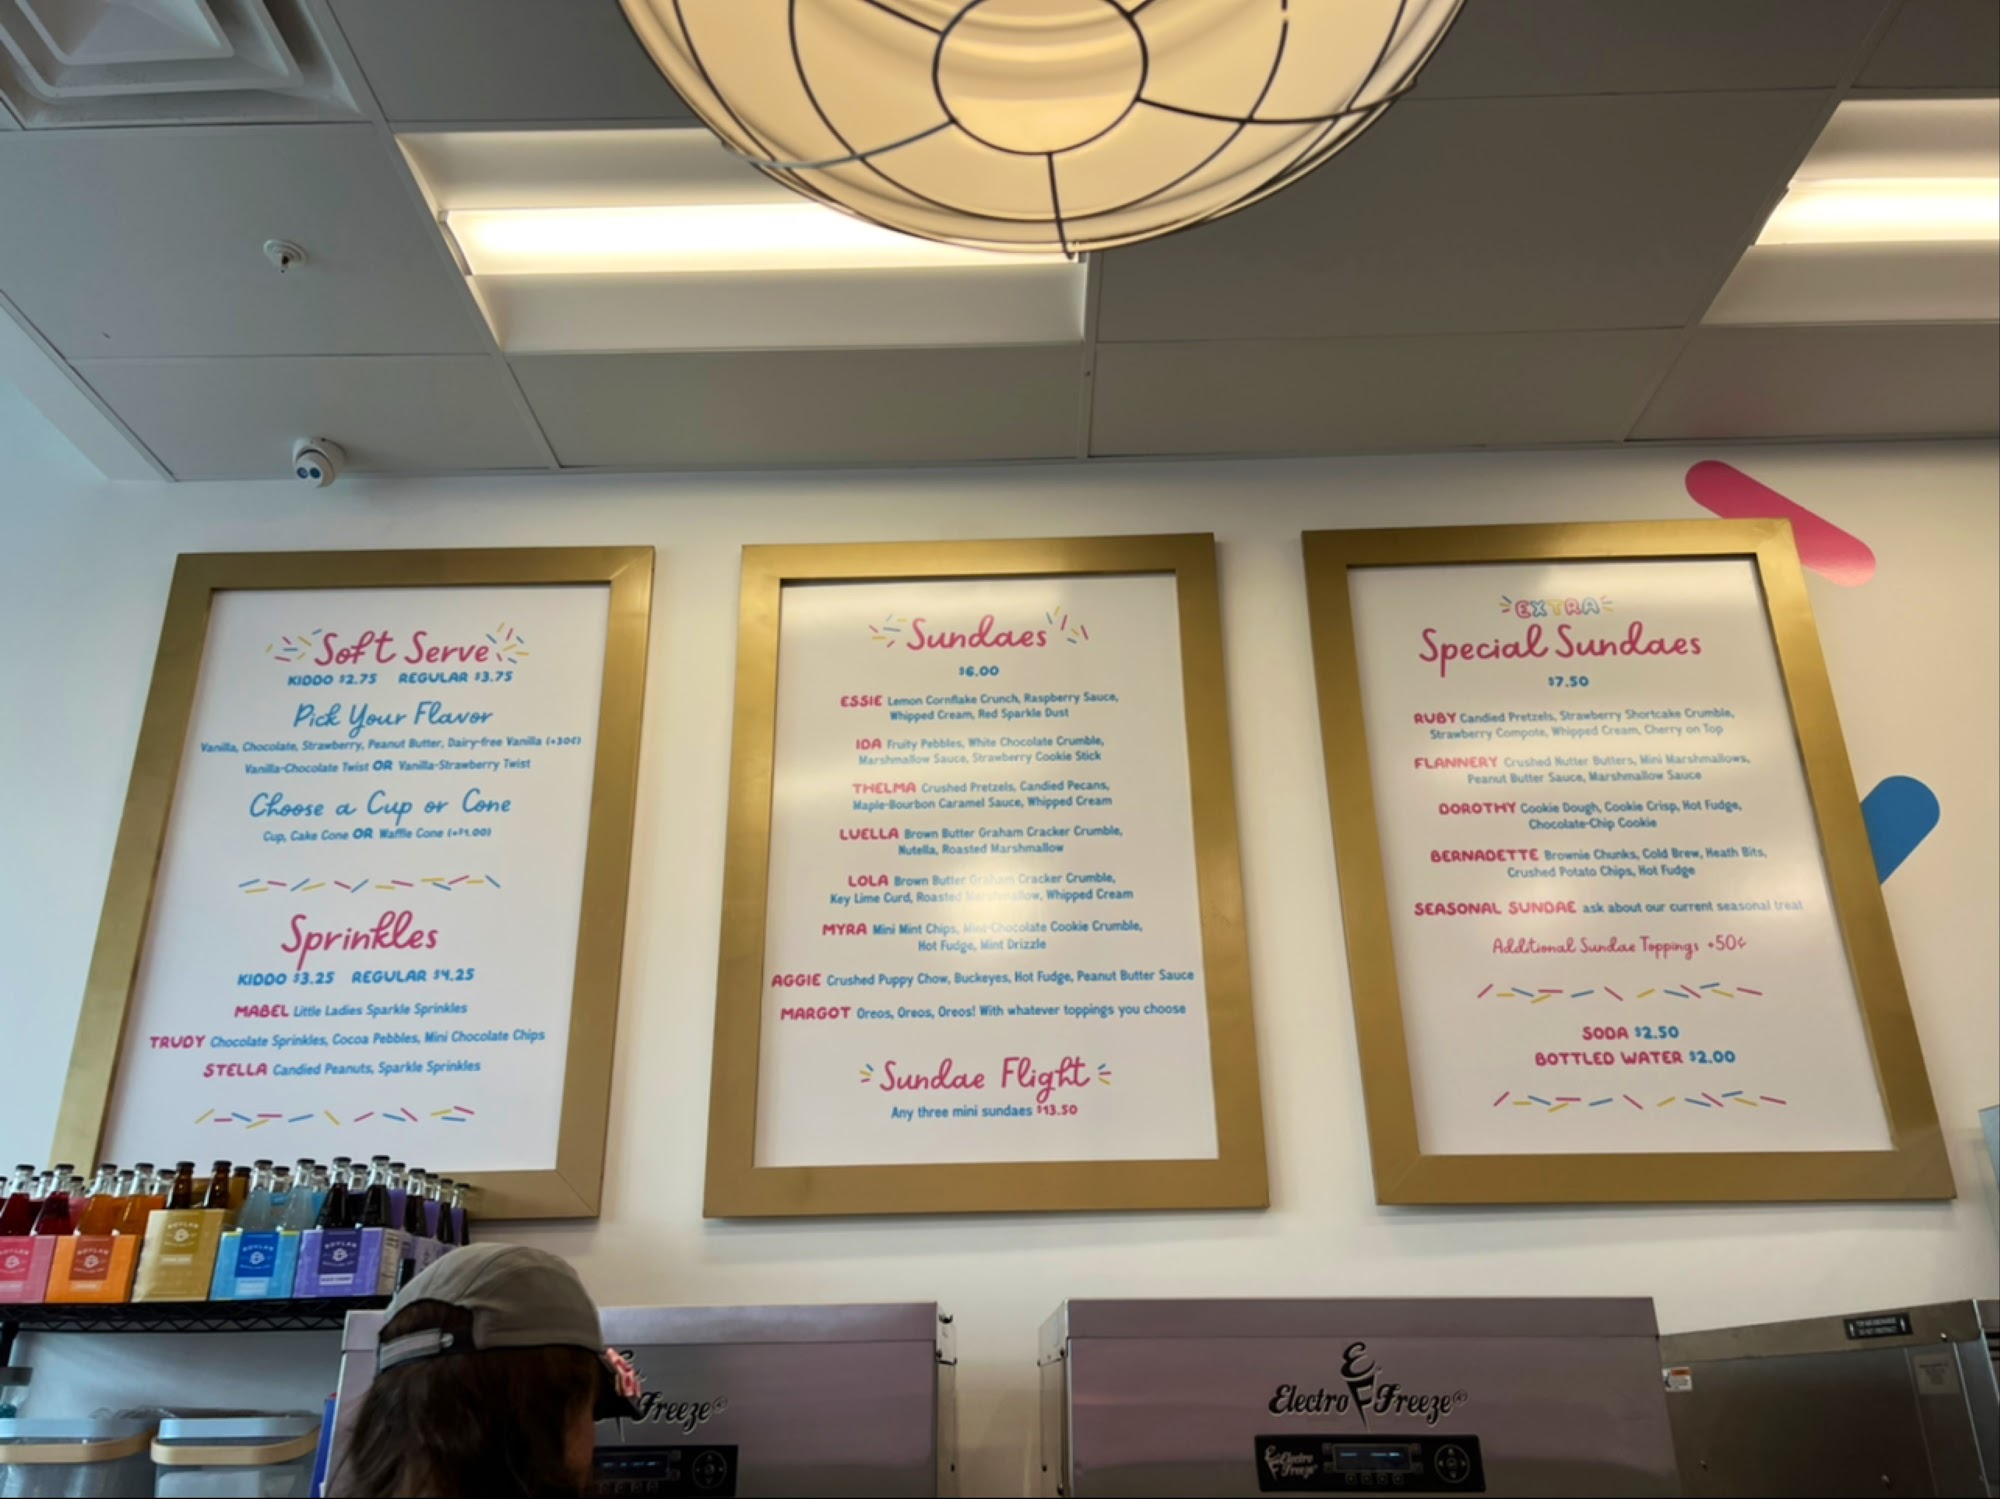 Soft Serve
KIDDO $2.75 REGULAR $3.75
Pick Your Flavor
Vanilla, Chocolate, Strawberry, Peanut Butter, Dairy-free Vanilla (+30¢)
Vanilla-Chocolate Twist OR Vanilla-Strawberry Twist
Choose a Cup or Cone
Cup, Cake Cone OR Waffle Cone (+$1.00)
Sprinkles
KIDDO $3.25 REGULAR $4.25
MABEL Little Ladies Sparkle Sprinkles
TRUDY Chocolate Sprinkles, Cocoa Pebbles, Mini Chocolate Chips
STELLA Candied Peanuts, Sparkle Sprinkles
Sundaes
$6.00
ESSIE Lemon Cornflake Crunch, Raspberry Sauce,
Whipped Cream, Red Sparkle Dust
IDA Fruity Pebbles, White Chocolate Crumble,
Marshmallow Sauce, Strawberry Cookie Stick
THELMA Crushed Pretzels, Candied Pecans,
Maple-Bourbon Caramel Sauce, Whipped Cream
LUELLA Brown Butter Graham Cracker Crumble,
Nutella, Roasted Marshmallow
LOLA Brown Butter Graham Cracker Crumble,
Key Lime Curd, Roasted Marshmallow, Whipped Cream
MYRA Mini Mint Chips, Mint-Chocolate Cookie Crumble,
Hot Fudge, Mint Drizzle
AGGIE Crushed Puppy Chow, Buckeyes, Hot Fudge, Peanut Butter Sauce
MARGOT Oreos, Oreos, Oreos! With whatever toppings you choose
Sundae Flight
Any three mini sundaes $13.50
EXTRA
Special Sundaes
$7.50
RUBY Candied Pretzels, Strawberry Shortcake Crumble,
Strawberry Compote, Whipped Cream, Cherry on Top
FLANNERY Crushed Nutter Butters, Mini Marshmallows,
Peanut Butter Sauce, Marshmallow Sauce
DOROTHY Cookie Dough, Cookie Crisp, Hot Fudge,
Chocolate-Chip Cookie
BERNADETTE Brownie Chunks, Cold Brew, Heath Bits,
Crushed Potato Chips, Hot Fudge
SEASONAL SUNDAE ask about our current seasonal treat
Additional Sundae Toppings +50¢
SODA $2.50
BOTTLED WATER $2.00
BOYLAN
BOYLAN
BOYLAN
BOYLAN
E
Freeze
E
Electro Freeze
Electro
Freeze